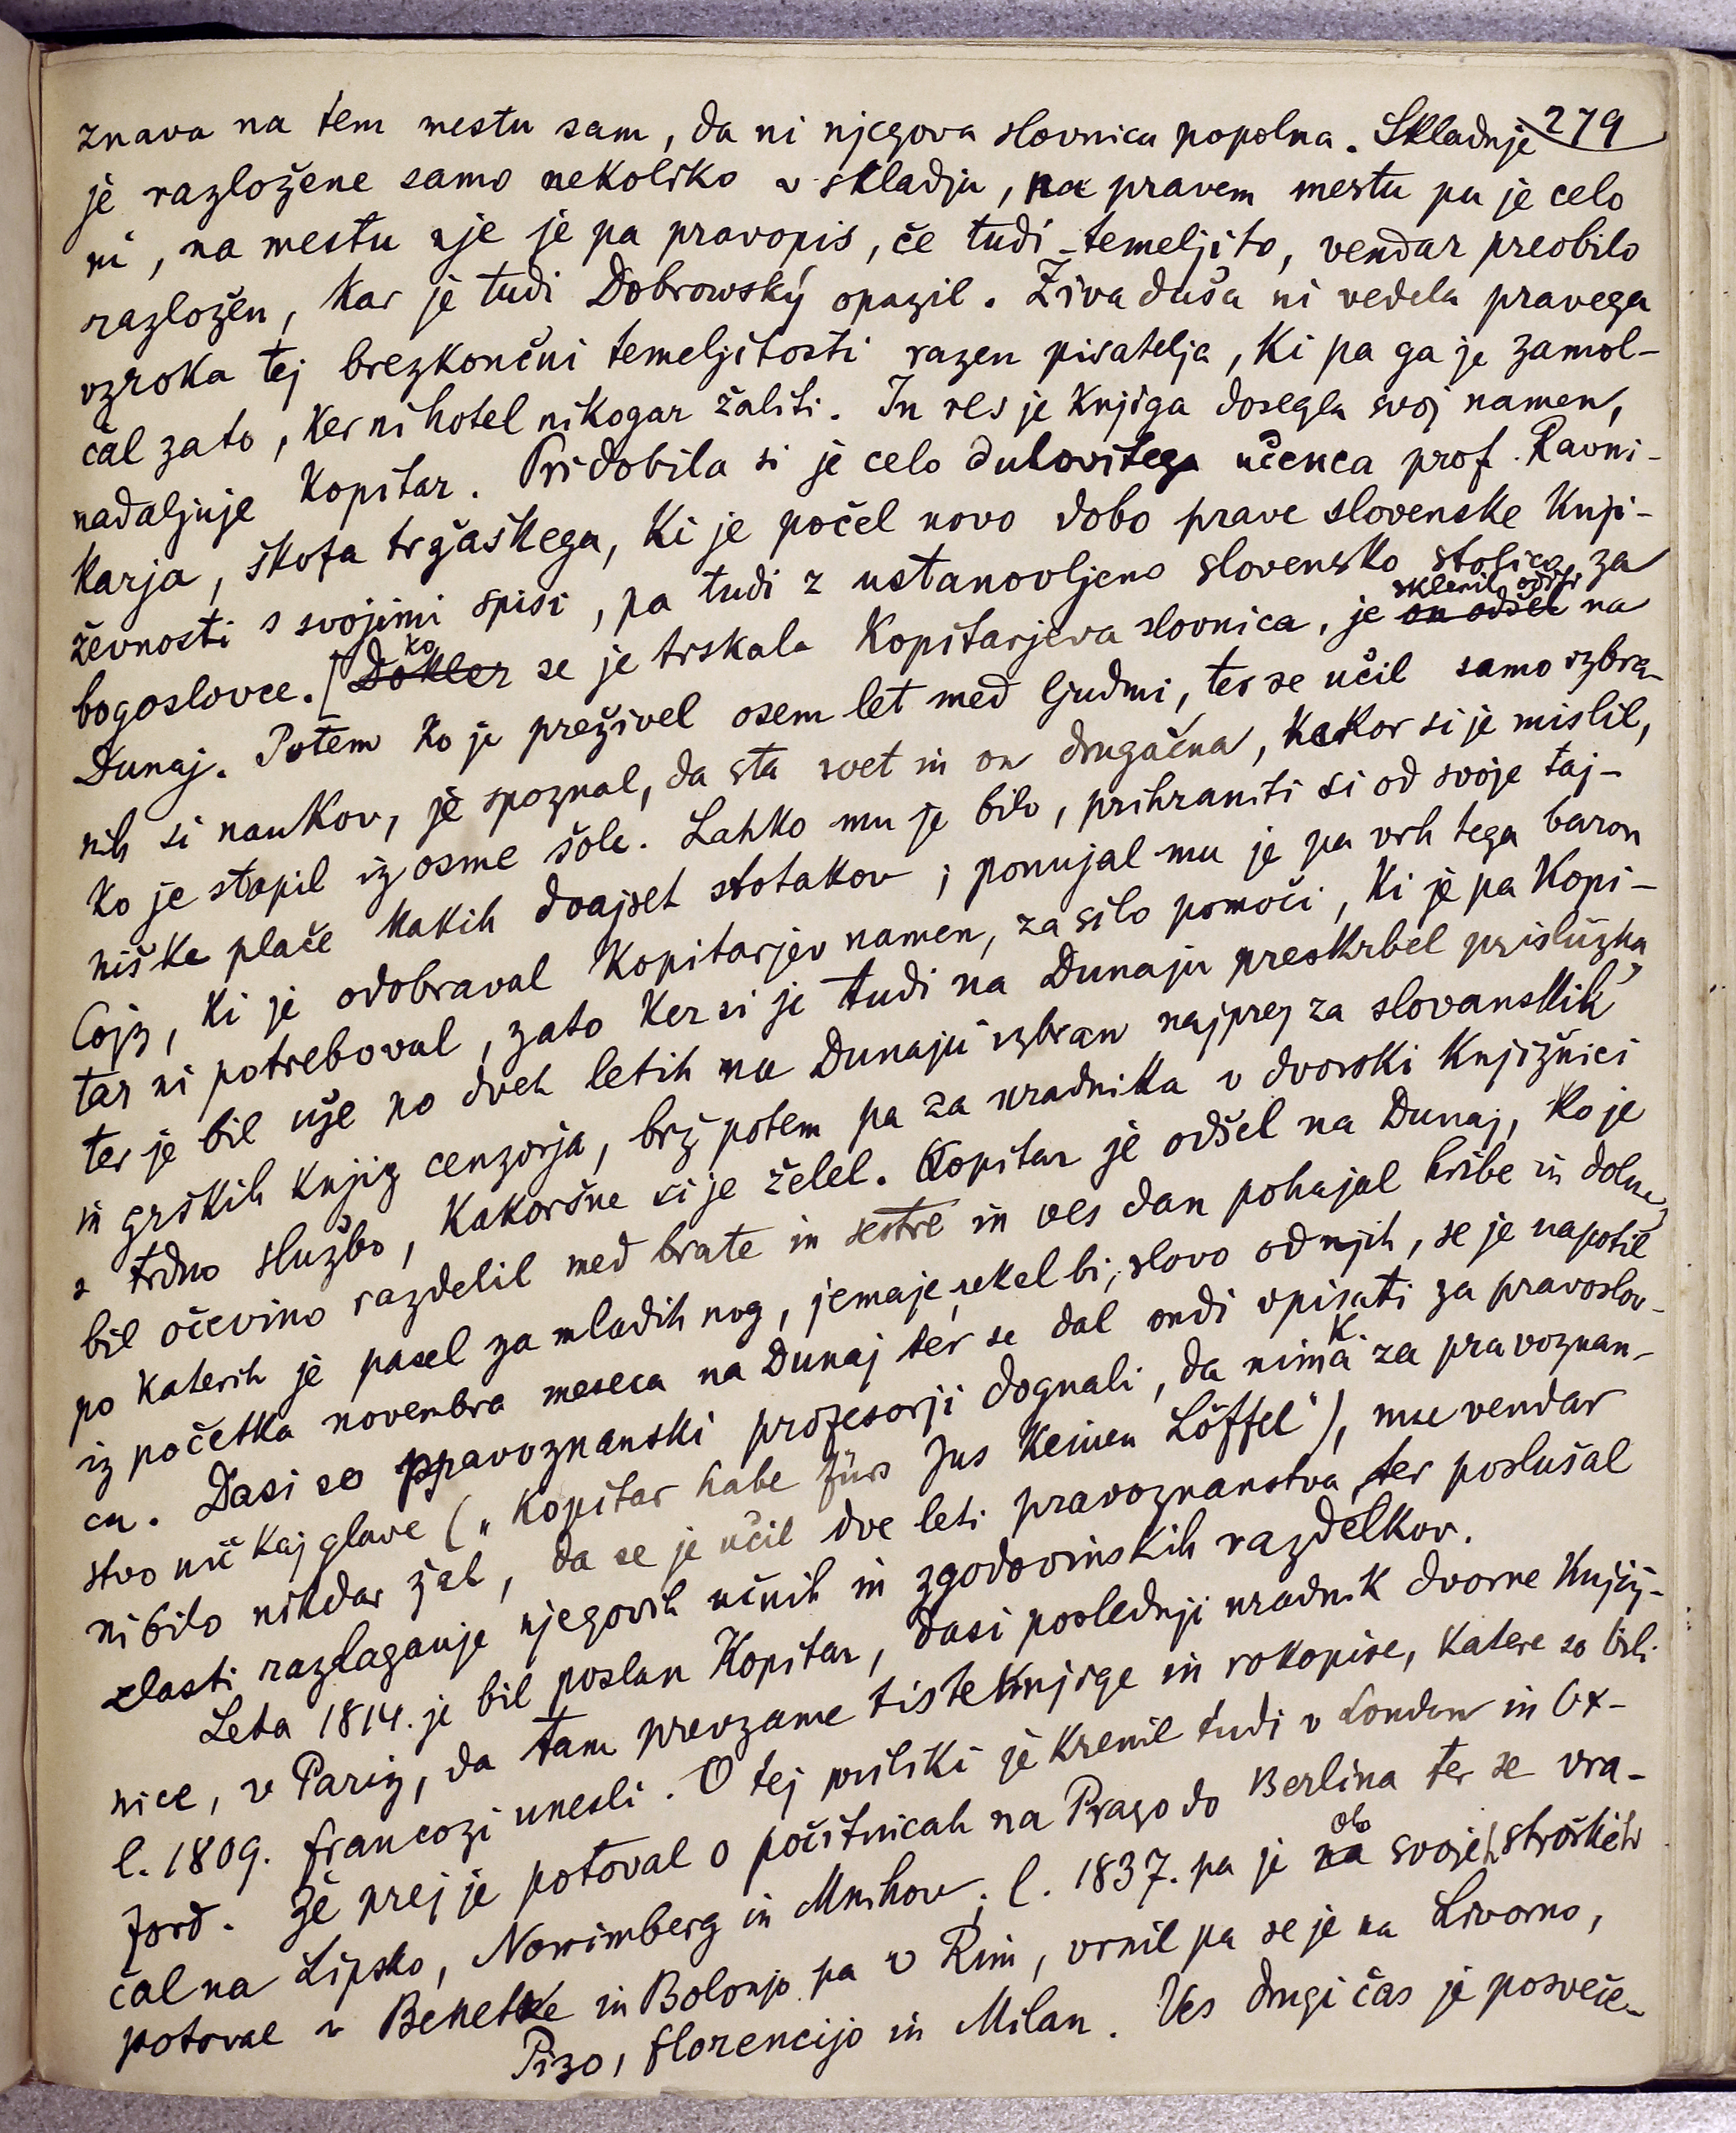 279
znava na tem mestu sam, da ni njegova slovnica popolna. Skladnje
je razložene samo nekoliko v skladju, na pravem mestu pa je celo
ni, na mestu nje je pa pravopis, če tudi temeljito, vendar preobilo
razložen, kar je tudi Dobrowský opazil. Živa duša ni vedela pravega
vzroka tej brezkončni temeljitosti razen pisatelja, ki pa ga je zamol-
čal zato, ker ni hotel nikogar žaliti. In res je knjiga dosegla svoj namen,
nadaljuje Kopitar. Pridobila si je celo duhovitega učenca prof. Ravni-
karja, škofa tržaškega, ki je počel novo dobo prave slovenske knji-
ževnosti s svojimi spisi, pa tudi z ustanovljeno slovensko stolico za
bogoslovce. [Dokler ko se je trskala Kopitarjeva slovnica, je on odšel sklenil oditi na
Dunaj. Potem ko je preživel osem let med ljudmi, ter se učil samo izbra-
nih si naukov, je spoznal, da sta svet in on drugačna, kakor si je mislil,
ko je stopil iz osme šole. Lahko mu je bilo, prihraniti si od svoje taj-
niške plače kakih dvajset stotakov; ponujal mu je pa vrh tega baron
Cojz, ki je odobraval Kopitarjev namen, za silo pomoči, ki je pa Kopi-
tar ni potreboval, zato ker si je tudi na Dunaju preskrbel prislužka,
ter je bil uže po dveh letih na Dunaju izbran najprej za slovanskih
in grških knjig cenzorja, brž potem pa za uradnika v dvorski knjižnici
s trdno službo, kakoršne si je želel. Kopitar je odšel na Dunaj, ko je
bil očevino razdelil med brate in sestre in ves dan pohajal hribe in doline,
po katerih je pasel za mladih nog, jemaje, rekel bi, slovo od njih, se je napotil
iz početka novembra meseca na Dunaj ter se dal ondi vpisati za pravoslov-
ca. Dasi so pravoznanski profesorji dognali, da nima K. za pravoznan-
stvo nič kaj glave („Kopitar habe fürs Jus keinen Löffel“), mu vendar
ni bilo nikdar žal, da se je učil dve leti pravoznanstva, ter poslušal
zlasti razlaganje njegovih učnih in zgodovinskih razdelkov.
Leta 1814. je bil poslan Kopitar, dasi poslednji uradnik dvorne knjiž-
nice, v Pariz, da tam prevzame tiste knjige in rokopise, katere so bili
l. 1809. francozi unesli. O tej priliki je krenil tudi v London in Ox-
ford. Že prej je potoval o počitnicah na Prago do Berlina ter se vra-
čal na Lipsko, Norimberg in Mnihov; l. 1837. pa je na ob svojih stroških
potoval v Benetke in Bolonjo pa v Rim, vrnil pa se je na Livorno,
Pizo, florencijo in Milan. Ves drugi čas je posveče-